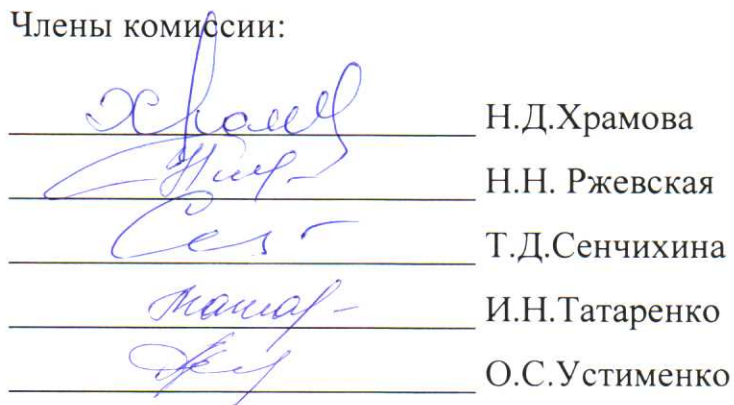 Члены комиссии:
Н.Д.Храмова
Н.Н. Ржевская
Т.Д.Сенчихина
И.Н.Татаренко
О.С.Устименко